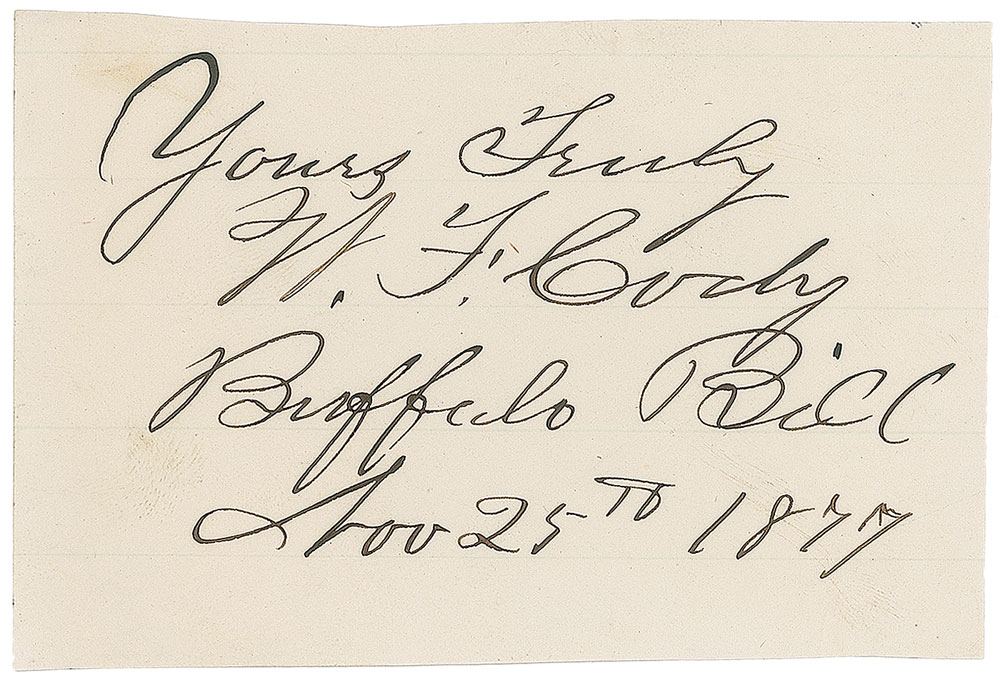 Yours Truly
W. F. Cody
Buffalo Bill
Nov 25th 1877